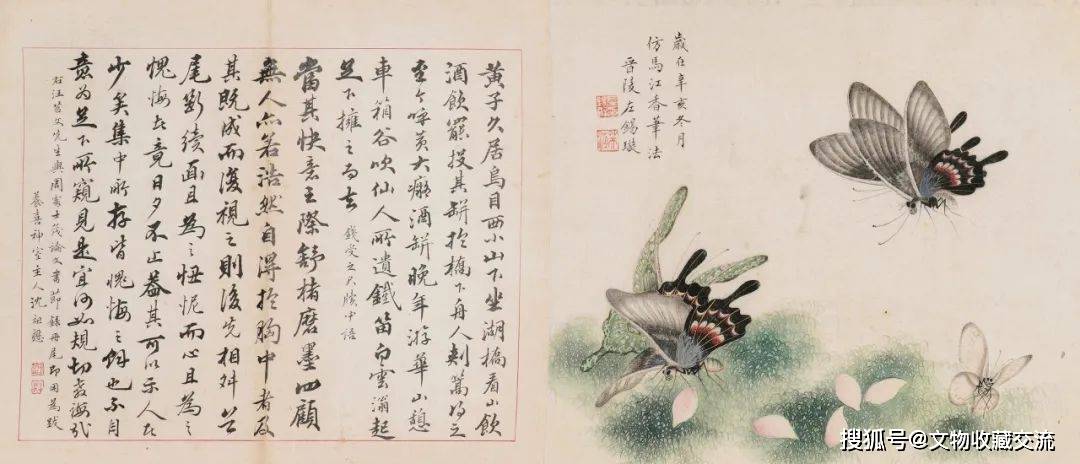 歲在辛亥冬月
仿馬江香筆法
晉陵左錫璇
黃子久居烏目西小山下坐湖橋看山飲
酒飲罷投其缾於橋下舟人刺篙得之
至今呼黃大癡酒缾晚年游華山憩
車箱谷吹仙人所遺鐵笛白雲滃起
足下擁之而去 錢受之尺牘中語
當其快意之際舒楮磨墨四顧
無人亦若浩然自得於胸中者及
其既成而復視之則後先相舛首
尾斷續面且為之忸怩而心且為之
愧悔者竟日夕不止蓋其可以示人者
少矣集中所存皆愧悔之餘也不自
意為足下所窺見是宜何如規切教誨
右汪苕文先生與周處士茂論文書節錄冊尾即因為跋
養喜神室主人沈祖
搜狐号@文物收藏交流